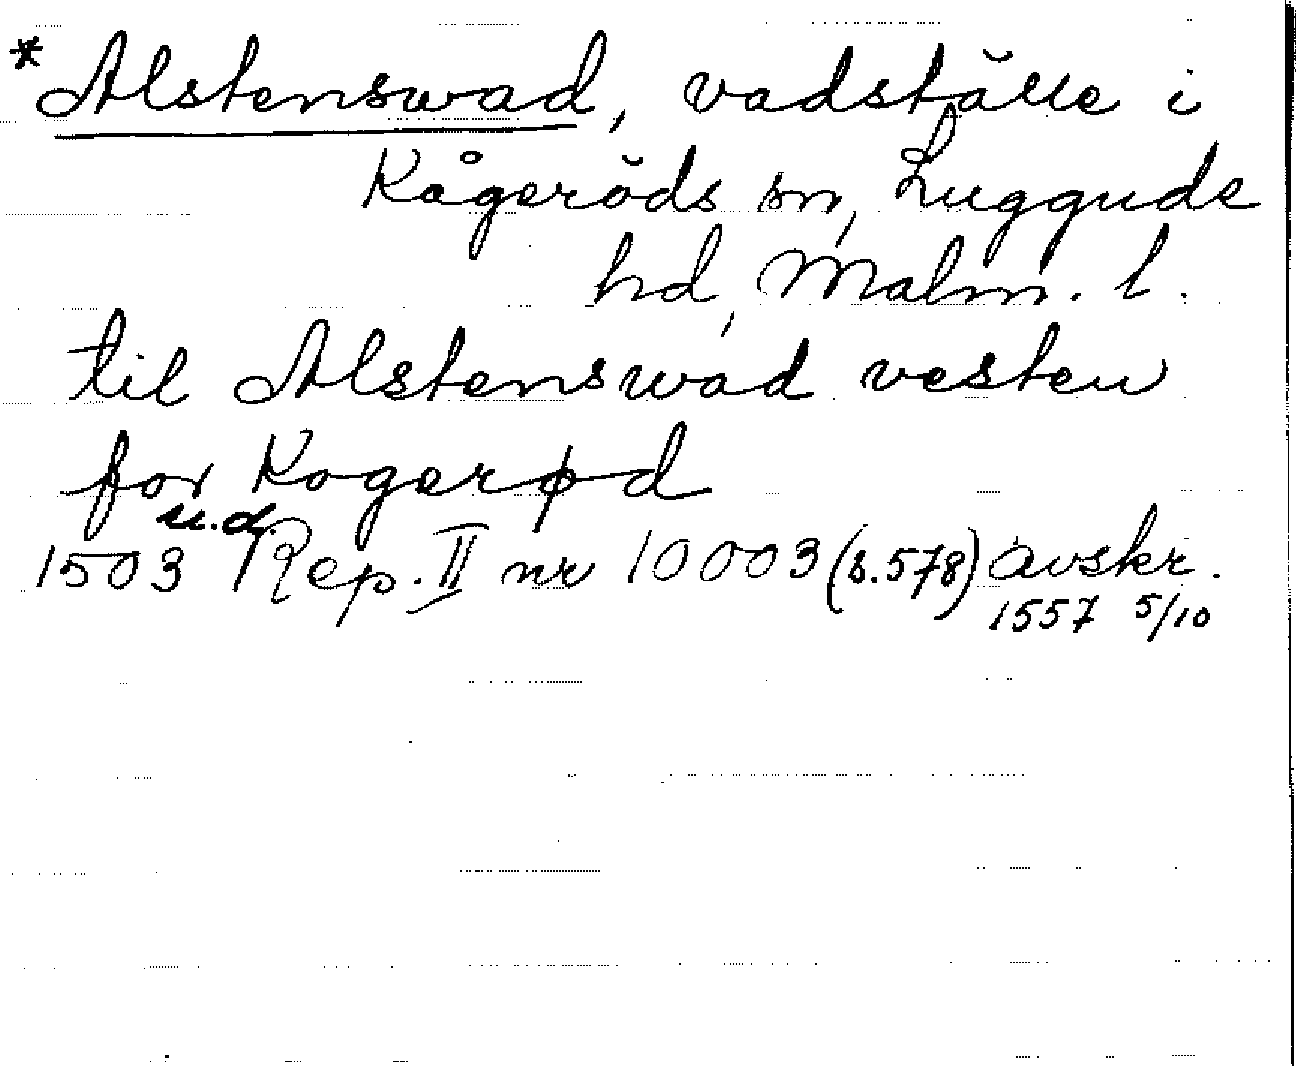 *Alstenswad, vadställe i
Kågeröds sn, Lugguds
hd, Malm. l.
til Alstenswad vesten
for Kogerød
1503 u.d. Rep. II nr 10003 (s.578) avskr.
1557 5/10